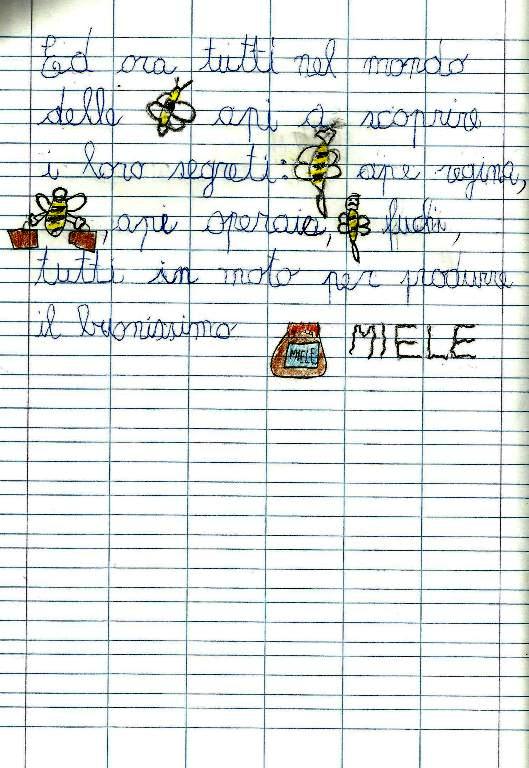 Ed ora tutti nel mondo
delle api a scoprire
i loro segreti: ape regina,
, api operaie, fuchi,
tutti in moto per produrre
il buonissimo MIELE MIELE